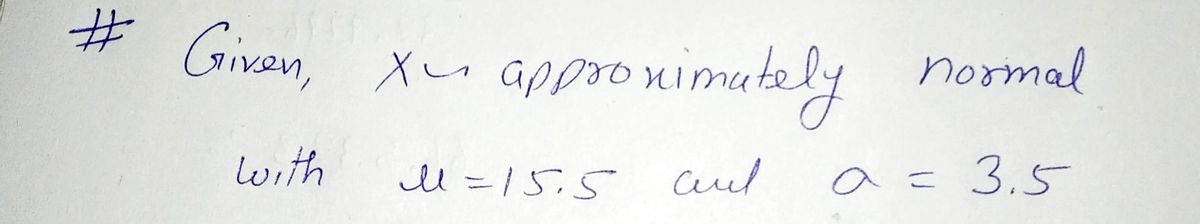 # Given, X ~ approximately normal
with μ = 15.5 and σ = 3.5